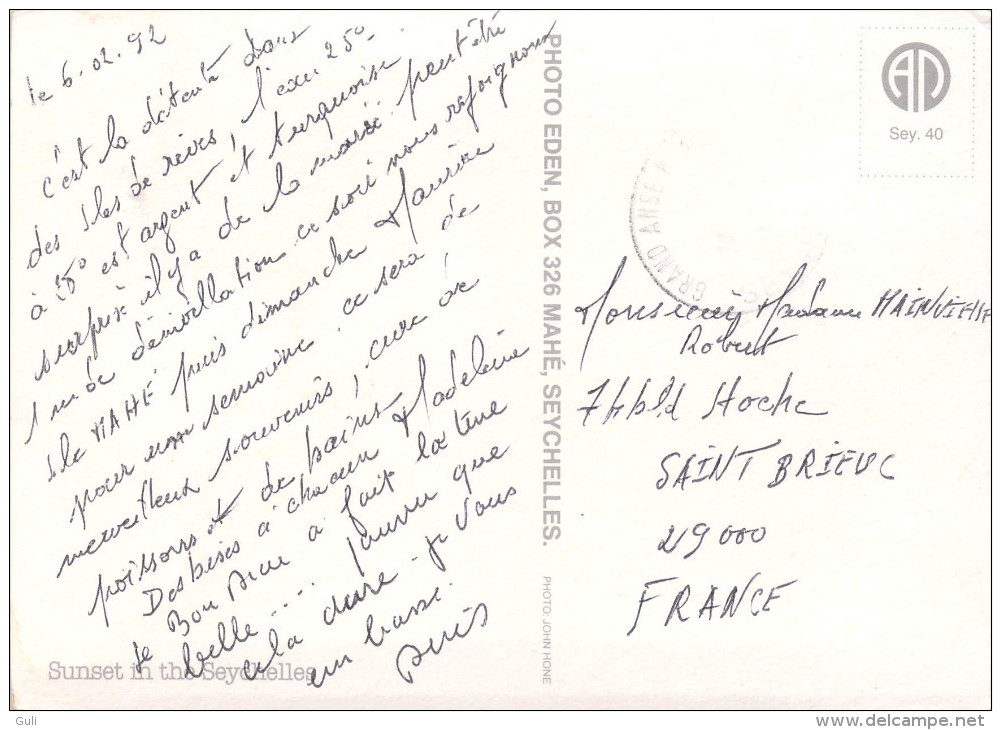 le 6.02.92
c'est la détente dans
des îles de rêves, l'eau 25°
à 30° est argent et turquoise
surprise il y a de la marée peut être
1 m de dénivellation ce soir nous rejoignons
île MAHÉ puis dimanche Maurice
pour une semaine ce sera de
merveilleux souvenirs,
poissons et de Saint Madeleine
Des bises à chacun
je la tune
belle... pourvu que
cela dure - je vous
embrasse.
Sunset in the Seychelles
PHOTO EDEN, BOX 326 MAHÉ, SEYCHELLES.
PHOTO: JOHN HONE
Sey. 40
GRAND ANSE
Monsieur Madame MAINVIELLE
Robert
74 bld Hoche
SAINT BRIEUC
29000
FRANCE
Guli
delcampe.net